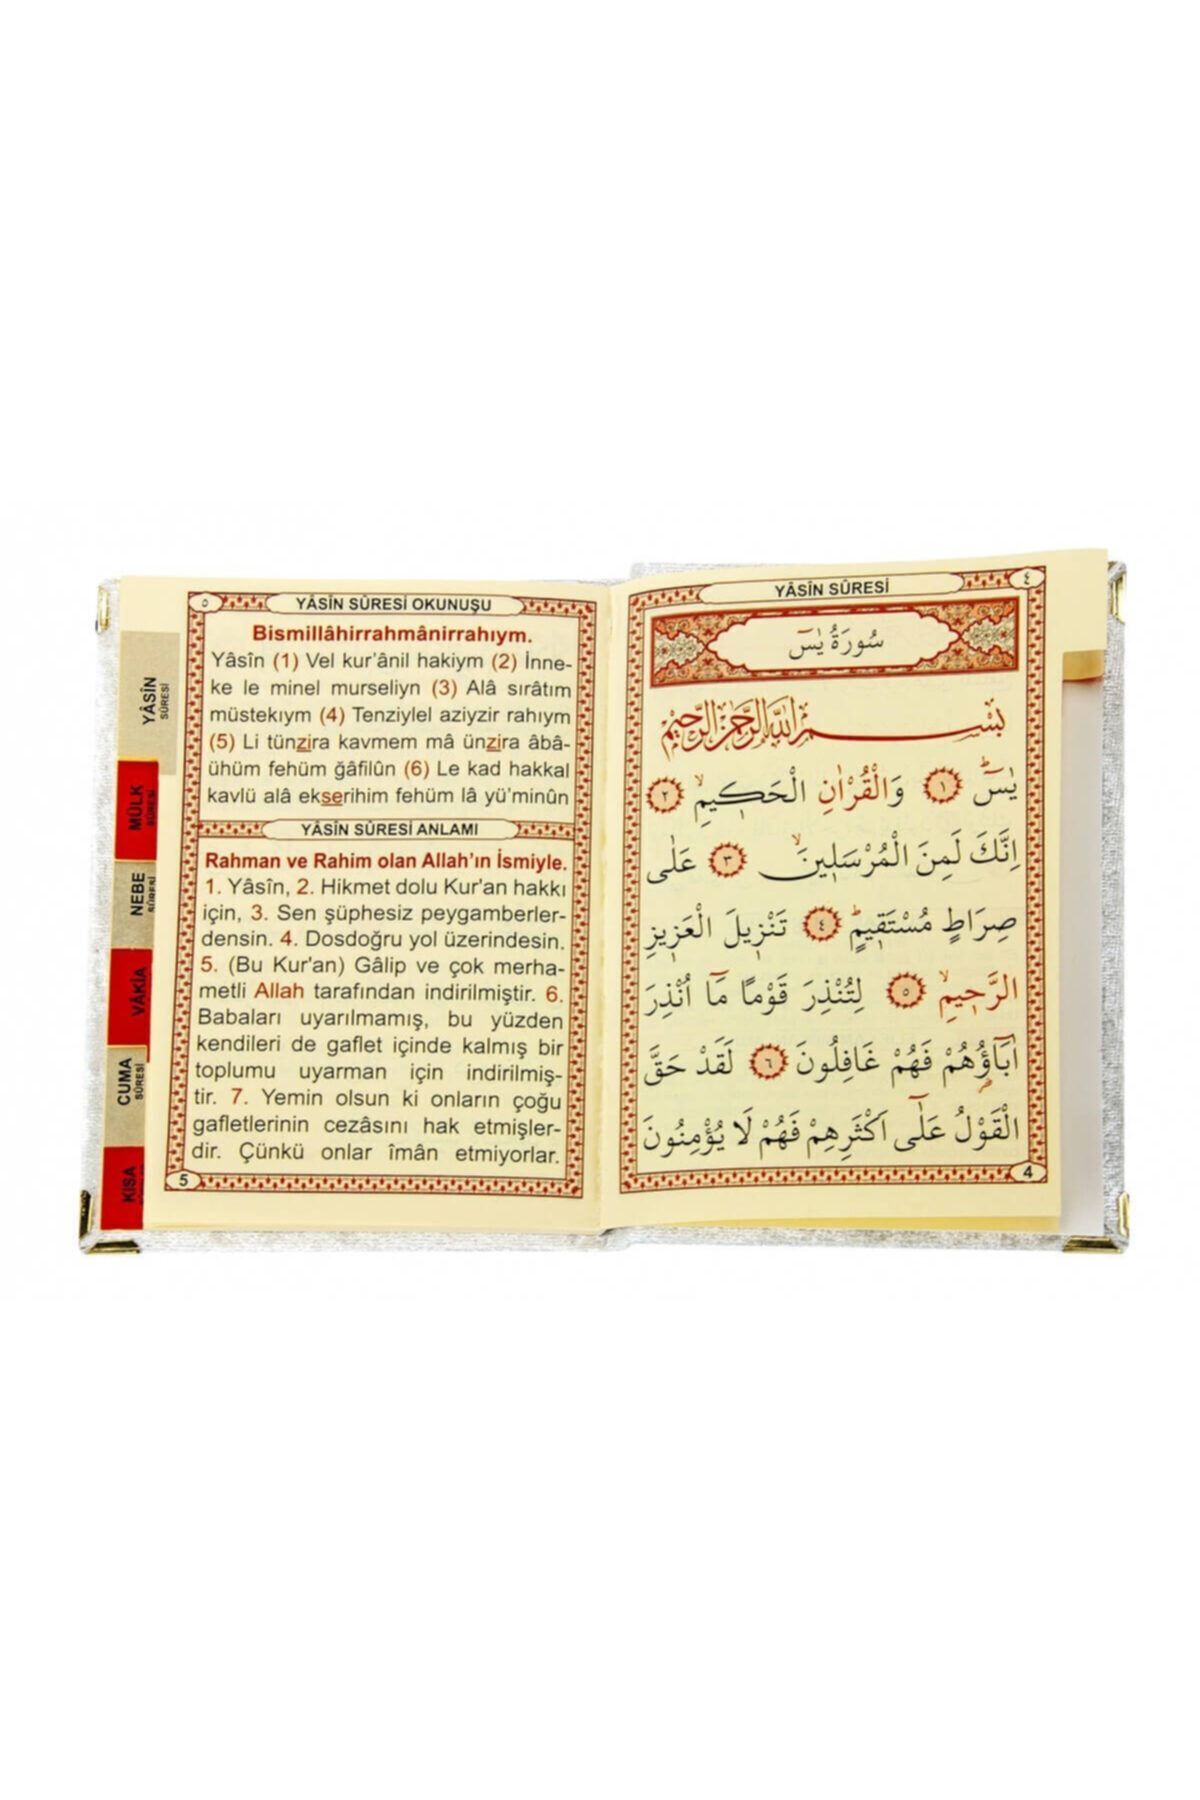 YÂSÎN SÛRESİ
٤
سُورَةُ يٰسٓ
بِسْمِ اللّٰهِ الرَّحْمٰنِ الرَّحِيمِ
يٰسٓۜ ﴿١﴾ وَالْقُرْاٰنِ الْحَكِيمِۙ ﴿٢﴾
اِنَّكَ لَمِنَ الْمُرْسَلِينَۙ ﴿٣﴾ عَلٰى
صِرَاطٍ مُسْتَقِيمٍۜ ﴿٤﴾ تَنْزِيلَ الْعَزِيزِ
الرَّحِيمِۙ ﴿٥﴾ لِتُنْذِرَ قَوْمًا مَٓا اُنْذِرَ
اٰبَٓاؤُ۬هُمْ فَهُمْ غَافِلُونَ ﴿٦﴾ لَقَدْ حَقَّ
الْقَوْلُ عَلٰٓى اَكْثَرِهِمْ فَهُمْ لَا يُؤْمِنُونَ
4
٥
YÂSÎN SÛRESİ OKUNUŞU
Bismillâhirrahmânirrahıym.
Yâsîn (1) Vel kur'ânil hakiym (2) İnne-
ke le minel murseliyn (3) Alâ sırâtım
müstekıym (4) Tenziylel aziyzir rahıym
(5) Li tünzira kavmem mâ ünzira âbâ-
ühüm fehüm ğâfilûn (6) Le kad hakkal
kavlü alâ ekserihim fehüm lâ yü'minûn
YÂSÎN SÛRESİ ANLAMI
Rahman ve Rahim olan Allah'ın İsmiyle.
1. Yâsîn, 2. Hikmet dolu Kur'an hakkı
için, 3. Sen şüphesiz peygamberler-
densin. 4. Dosdoğru yol üzerindesin.
5. (Bu Kur'an) Gâlip ve çok merha-
metli Allah tarafından indirilmiştir. 6.
Babaları uyarılmamış, bu yüzden
kendileri de gaflet içinde kalmış bir
toplumu uyarman için indirilmiş-
tir. 7. Yemin olsun ki onların çoğu
gafletlerinin cezâsını hak etmişler-
dir. Çünkü onlar îmân etmiyorlar.
5
YÂSÎN
SÛRESİ
MÜLK
SÛRESİ
NEBE
SÛRESİ
VÂKIA
CUMA
SÛRESİ
KISA